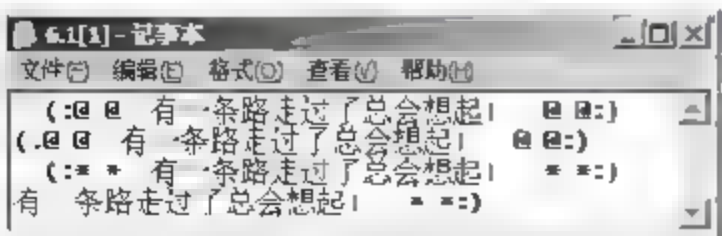 6.1[1] - 记事本
文件(F) 编辑(E) 格式(O) 查看(V) 帮助(H)
(:@ @ 有一条路走过了总会想起! @ @:)
(.@ @ 有一条路走过了总会想起! @ @:)
(:* * 有一条路走过了总会想起! * *:)
有一条路走过了总会想起! * *:)